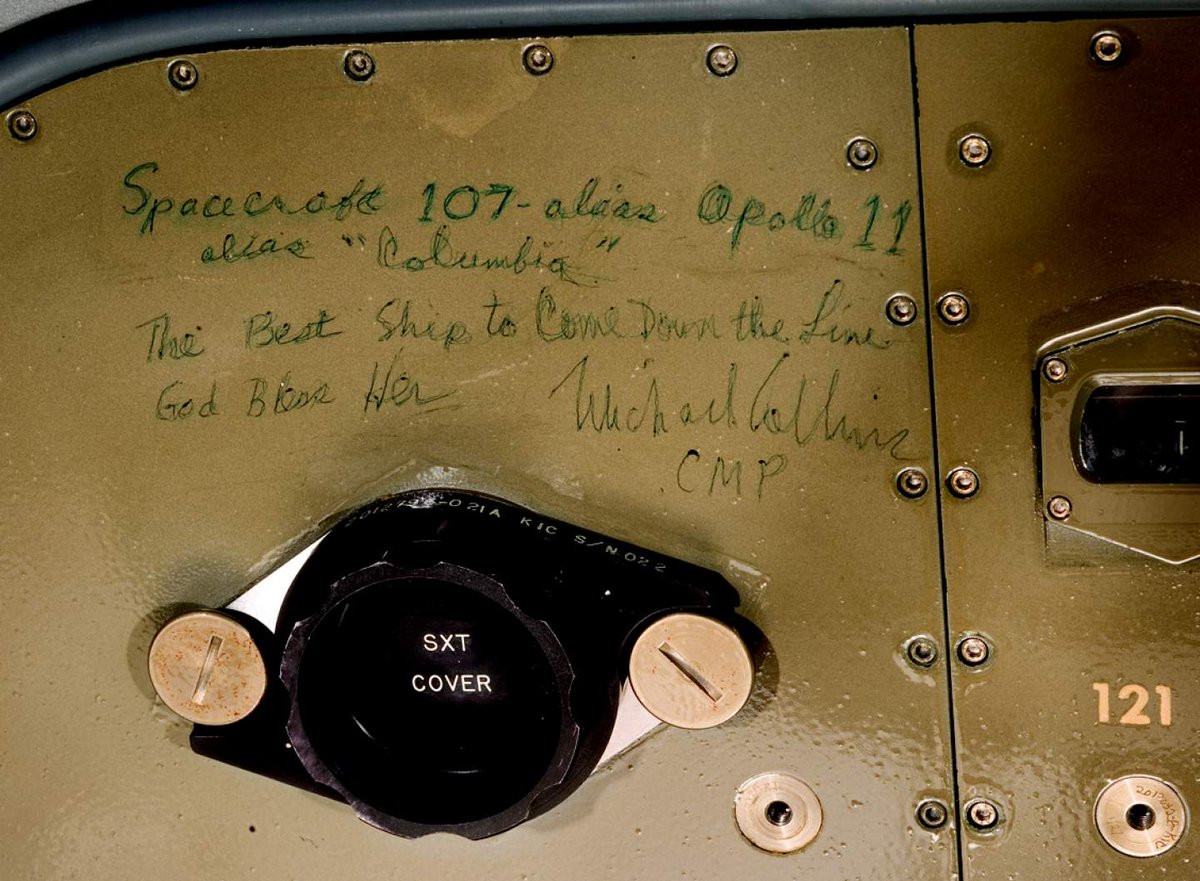 Spacecraft 107 - alias Apollo 11
alias "Columbia"
The Best Ship to Come Down the Line
God Bless Her
Michael Collins
CMP
021A KIC S/N 022
SXT
COVER
121